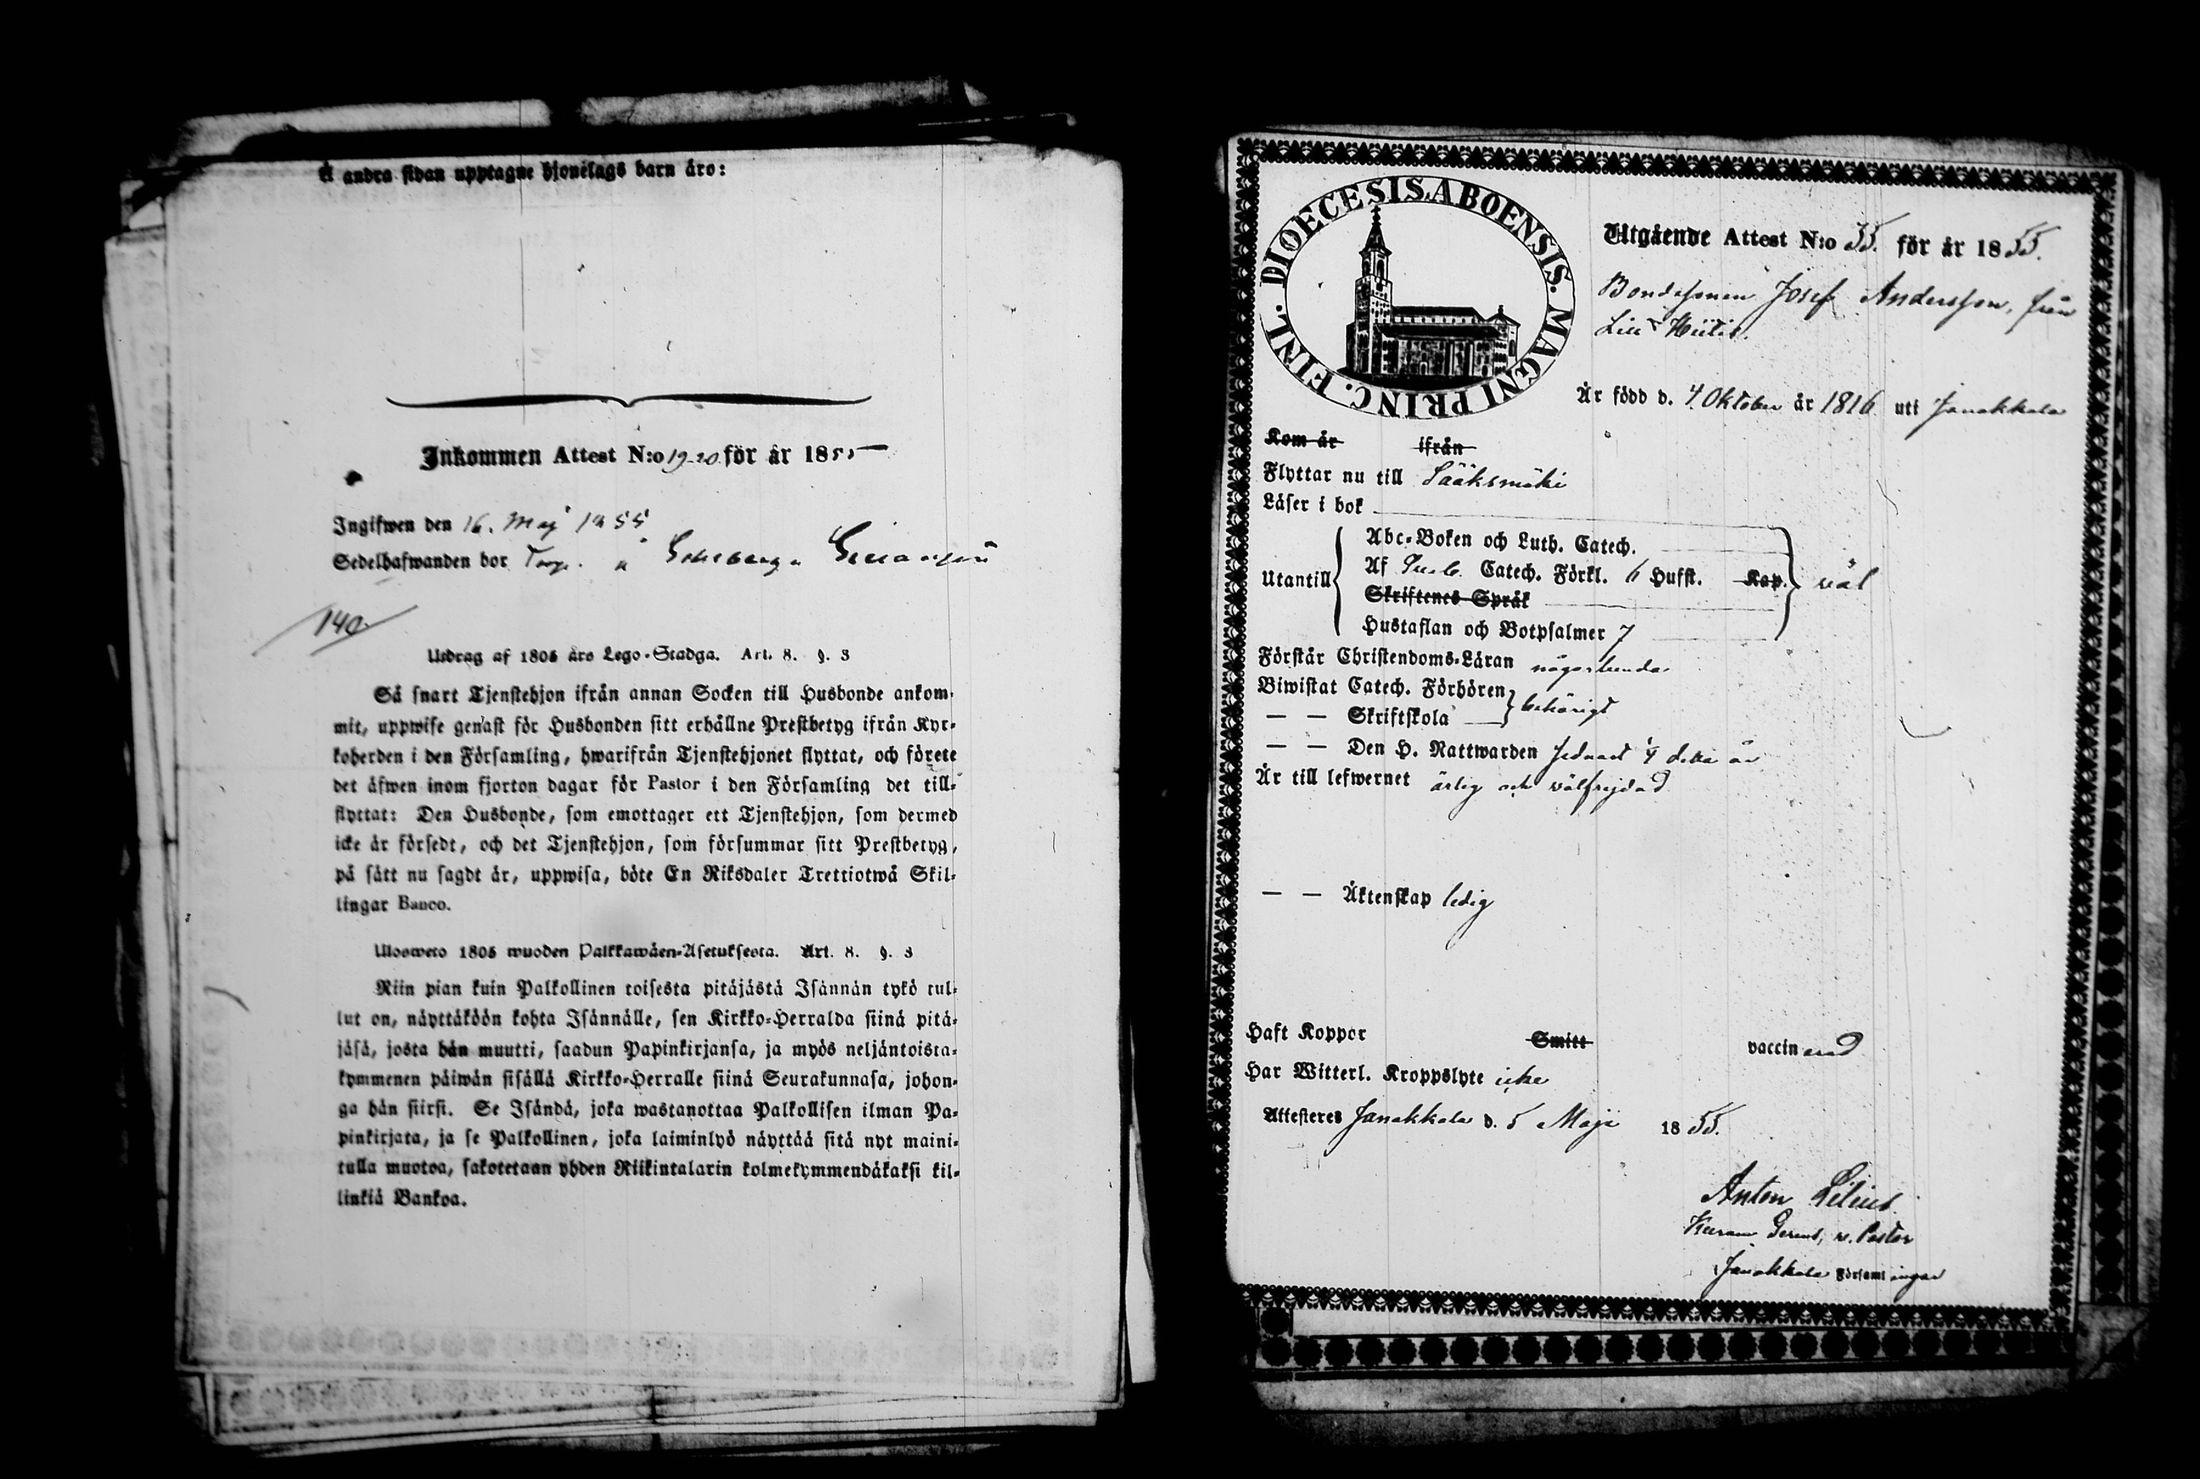 Å andra sidan upptagne hjonelags barn äro:
Inkommen Attest N:o 19-20 för år 1855
Ingifwen den 16. Maj 1855
Sedelhafwanden bor Torp. å
140
Utdrag af 1805 års Lego-Stadga. Art. 8. §. 3
Så snart Tjenstehjon ifrån annan Socken till Husbonde ankom-
mit, uppwise genast för Husbonden sitt erhållne Prestbetyg ifrån Kyr-
koherden i den Församling, hwarifrån Tjenstehjonet flyttat, och förete
det äfwen inom fjorton dagar för Pastor i den Församling det till-
flyttat: Den Husbonde, som emottager ett Tjenstehjon, som dermed
icke är försedt, och det Tjenstehjon, som försummar sitt Prestbetyg,
på sätt nu sagdt är, uppwisa, böte En Riksdaler Trettiotwå Skil-
lingar Banco.
Ulosweto 1805 wuoden Palkkawäen-Asetuksesta. Art. 8. §. 3
Niin pian kuin Palkollinen toisesta pitäjästä Isännän tykö tul-
lut on, näyttäköön kohta Isännälle, sen Kirkko-Herralda siinä pitä-
jäsä, josta hän muutti, saadun Papinkirjansa, ja myös neljäntoista-
kymmenen päiwän sisällä Kirkko-Herralle siinä Seurakunnasa, johon-
ga hän siirsi. Se Isändä, joka wastanottaa Palkollisen ilman Pa-
pinkirjata, ja se Palkollinen, joka laiminlyö näyttää sitä nyt maini-
tulla muotoa, sakotetaan yhden Riikintalarin kolmekymmendäkaksi kil-
linkiä Bankoa.
DIOECESIS. ABOENSIS. MAGNI PRINC. FINL.
Utgående Attest N:o 55. för år 1855.
Bondesonen Josef Andersson, från
Lill Hiitis.
Är född d. 4 Oktober år 1816 uti Janakkala
Kom år ifrån
Flyttar nu till Sääksmäki
Läser i bok
Utantill
Abc-Boken och Luth. Catech.
Af Catech. Förkl. 6 Hufst. Kap. väl
Skriftenes Språk
Hustaflan och Botpsalmer 7
Förstår Christendoms-Läran någorlunda
Biwistat Catech. Förhören behörigt
— — Skriftskola
— — Den H. Nattwarden sednast detta år
Är till lefwernet ärlig och välfrejdad
— — Äktenskap ledig
Haft Koppor Smitt vaccinerad
Har Witterl. Kroppslyte icke
Attesteres Janakkala d. 5 Maji 1855.
Anton Lilius.
Pastor
Janakkala Församlingar